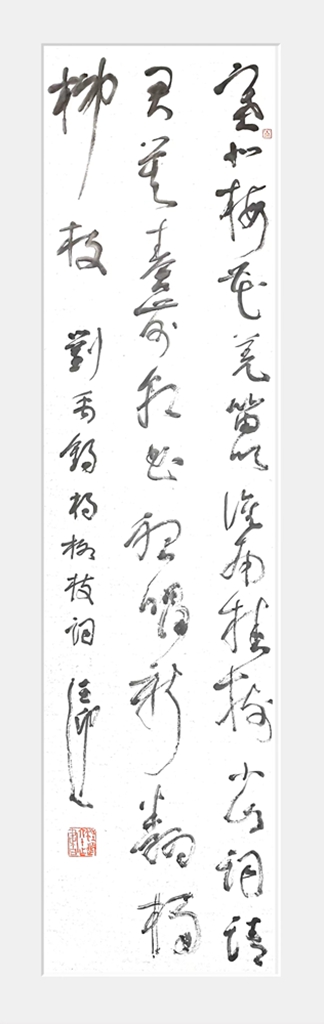 塞北梅花羌笛吹淮南桂樹小山詞請
君莫奏前朝曲聽唱新翻楊
柳枝 劉禹錫楊柳枝詞